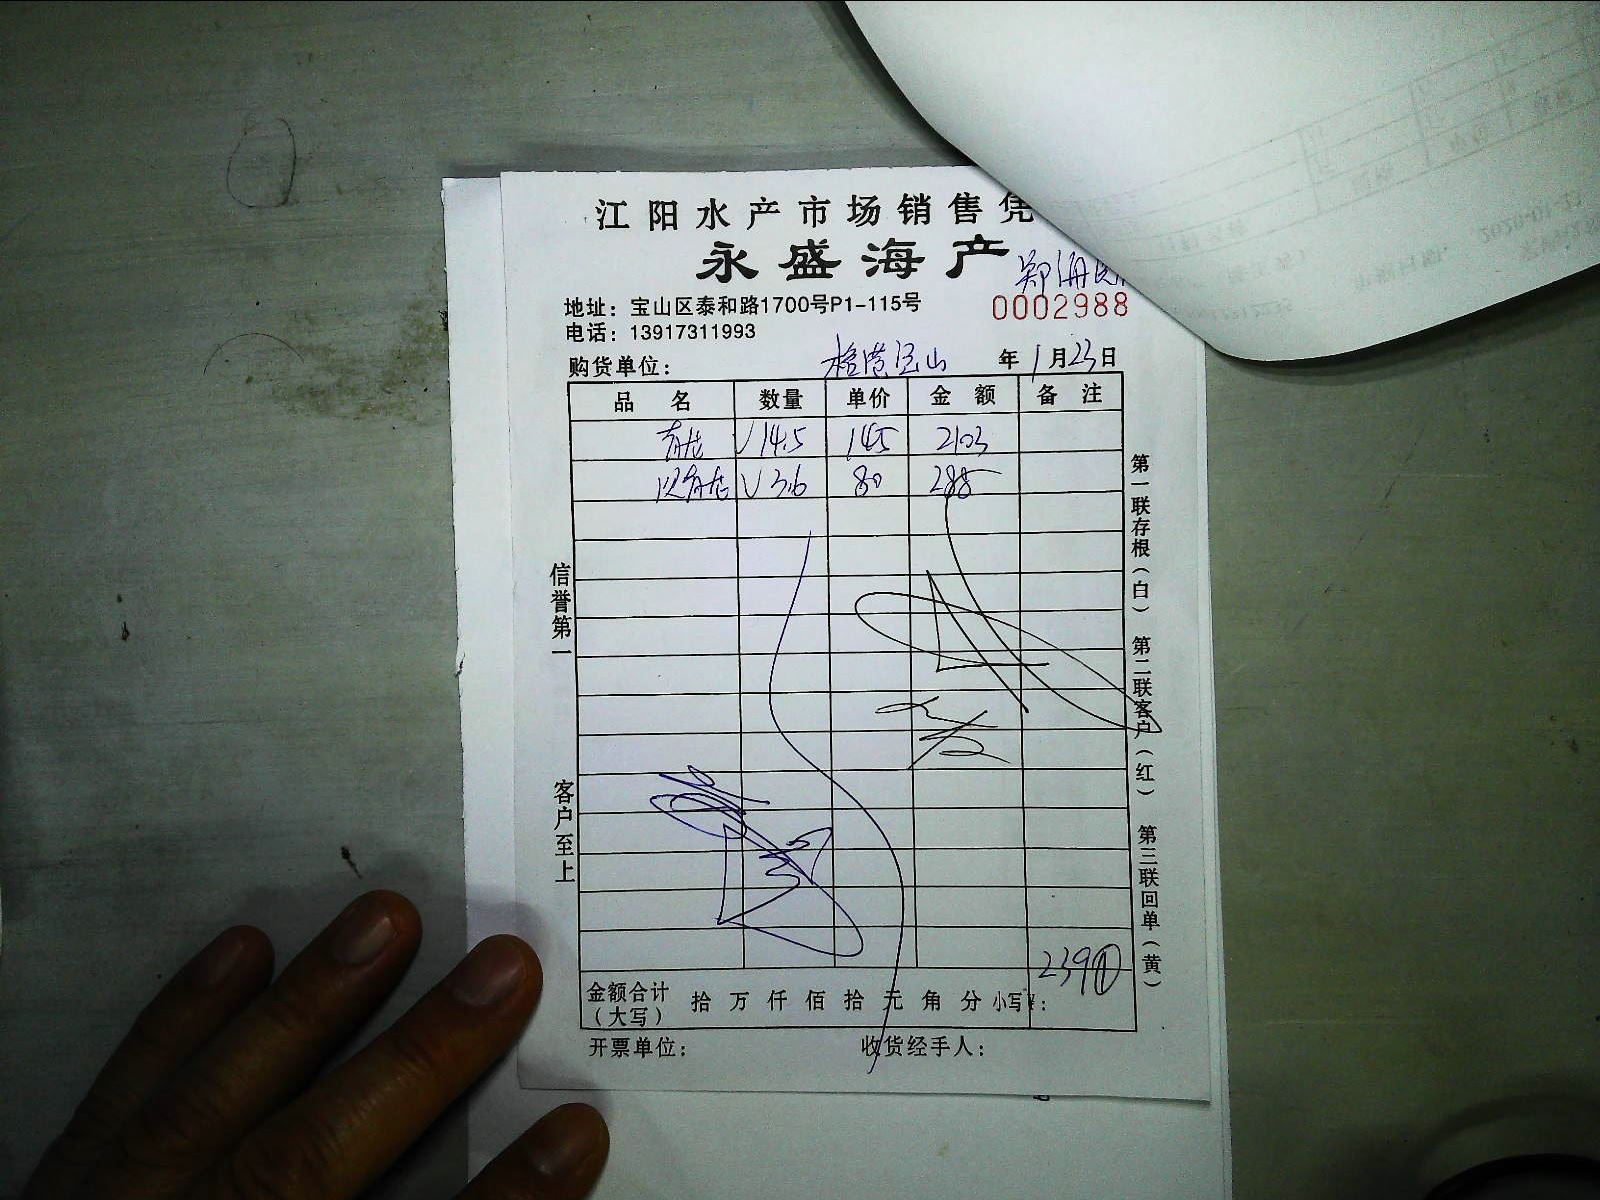 江阳水产市场销售凭
永盛海产
地址：宝山区泰和路1700号P1-115号
0002988
电话：13917311993
购货单位： 年 1月23日
品名 数量 单价 金额 备注
√14.5 145 2103
√3.6 80 288
信誉第一
客户至上
第一联存根（白） 第二联客户（红） 第三联回单（黄）
金额合计（大写） 拾 万 仟 佰 拾 元 角 分 小写¥： 2391
开票单位： 收货经手人：